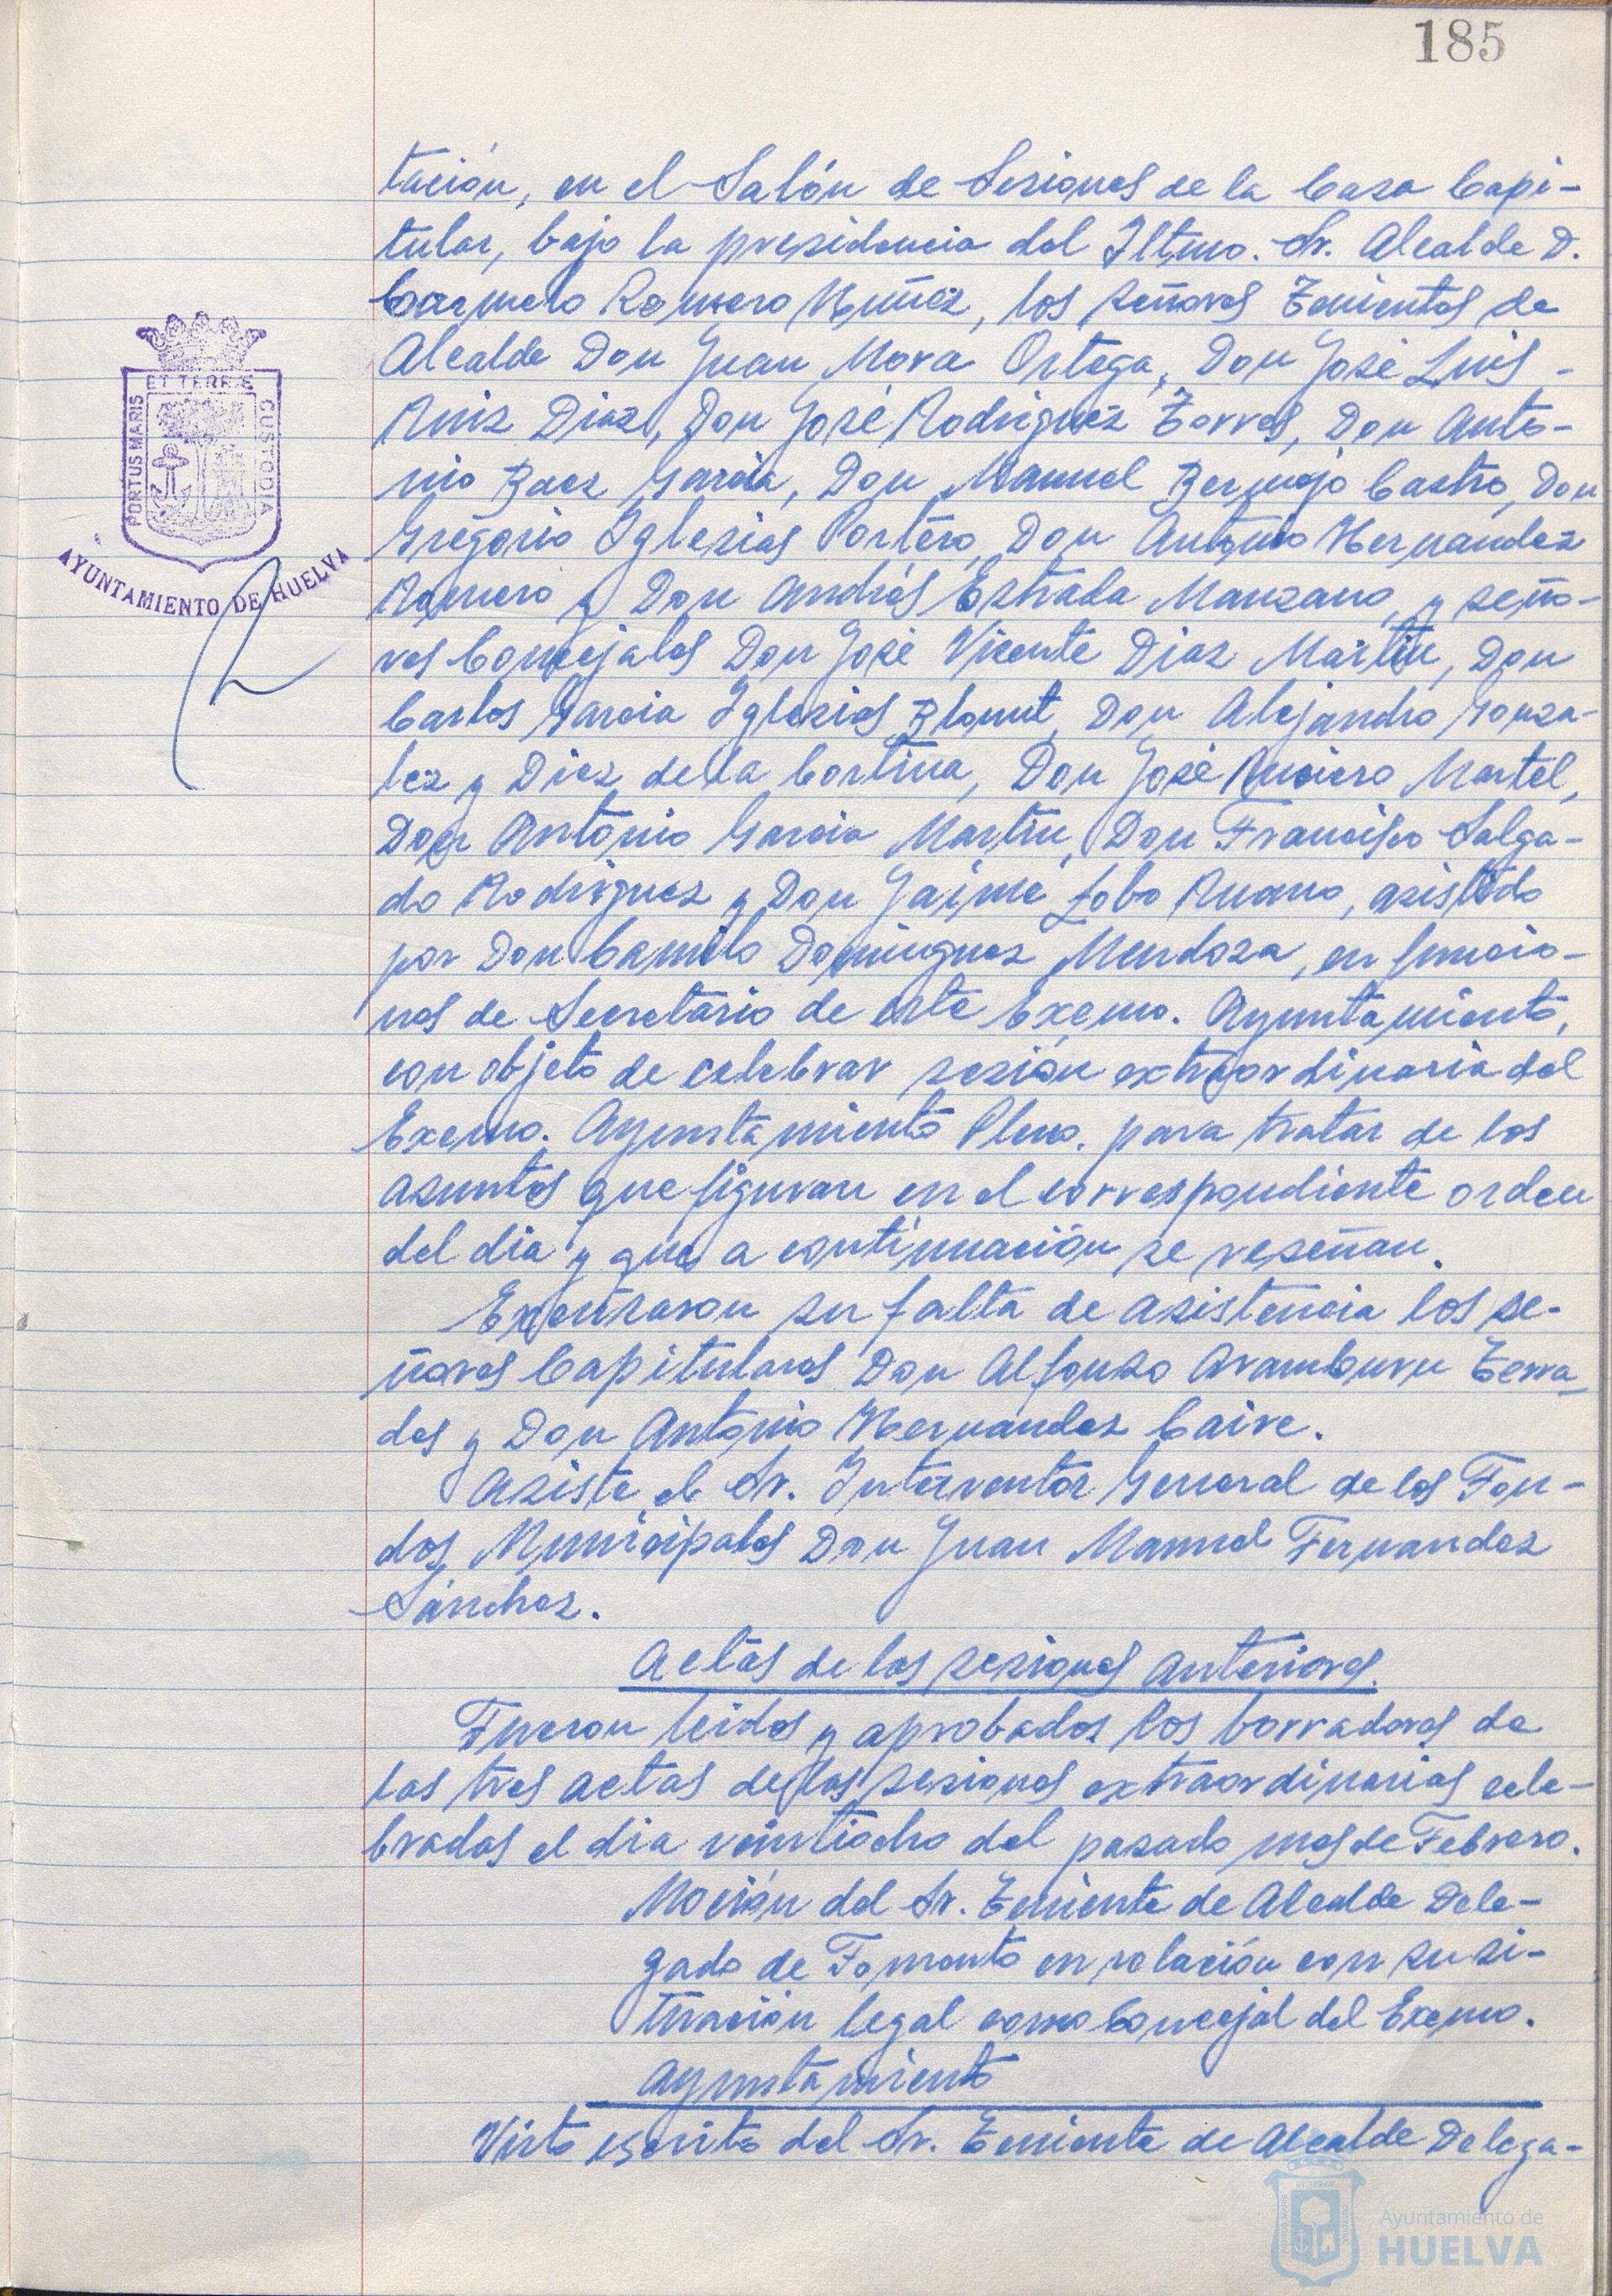 185
tación, en el Salón de Sesiones de la Casa Capi-
tular, bajo la presidencia del Iltmo. Sr. Alcalde D.
Carmelo Romero Nuñez, los señores Tenientes de
Alcalde Don Juan Mora Ortega, Don José Luis -
Ruiz Diaz, Don José Rodriguez Torres, Don Anto-
nio Baez Garcia, Don Manuel Bermejo Castro, Don
Gregorio Iglesias Portero, Don Antonio Hernandez
Romero y Don Andrés Estrada Manzano, y seño-
res Concejales Don José Vicente Diaz Martin, Don
Carlos Garcia Iglesias Blount, Don Alejandro Gonza-
lez y Diez de la Cortina, Don José Martel,
Don Antonio Garcia Martin, Don Francisco Salga-
do Rodriguez y Don Jaime Lobo Ruano, asistido
por Don Camilo Dominguez Mendoza, en funcio-
nes de Secretario de este Excmo. Ayuntamiento,
con objeto de celebrar sesión extraordinaria del
Excmo. Ayuntamiento Pleno. para tratar de los
asuntos que figuran en el correspondiente orden
del dia y que a continuación se reseñan.
Excusaron su falta de asistencia los se-
ñores Capitulares Don Alfonso Aramburu Terra-
des y Don Antonio Hernandez Caire.
Asiste el Sr. Interventor General de los Fon-
dos Municipales Don Juan Manuel Fernandez
Sánchez.
Actas de las sesiones anteriores.
Fueron leidos y aprobados los borradores de
las tres actas de las sesiones extraordinarias cele-
bradas el dia veintiocho del pasado mes de Febrero.
Moción del Sr. Teniente de Alcalde Dele-
gado de Fomento en relación con su si-
tuación legal como Concejal del Excmo.
Ayuntamiento
Visto escrito del Sr. Teniente de Alcalde Delega-
PORTUS MARIS
ET TERRÆ
CUSTODIA
AYUNTAMIENTO DE HUELVA
Ayuntamiento de
HUELVA